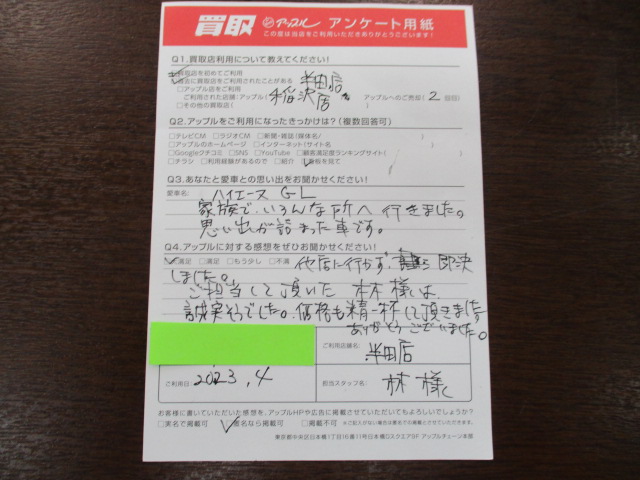 買取 アップル アンケート用紙
この度は当店をご利用いただきありがとうございます!
Q1.買取店利用について教えてください!
買取店を初めてご利用
過去に買取店をご利用されたことがある 半田店
□アップル店をご利用
ご利用された店舗(アップル 稲沢店 アップルへのご売却( 2 回目)
□その他の買取店(
Q2.アップルをご利用になったきっかけは?(複数回答可)
□テレビCM □ラジオCM □新聞・雑誌(媒体名/ )
□アップルのホームページ □インターネット(サイト名 )
□Googleクチコミ □SNS □YouTube □顧客満足度ランキングサイト( )
□チラシ □利用経験があるので □紹介 ☑看板を見て
Q3.あなたと愛車との思い出をお聞かせください!
愛車名/ ハイエース GL
家族で、いろんな所へ行きました。
思い出が詰まった車です。
Q4.アップルに対する感想をぜひお聞かせください!
☑大満足 □満足 □もう少し □不満 他店に行かず、即決
しました。
ご担当して頂いた 林様は
誠実そうでした。価格も精一杯して頂きました。
ありがとうございました。
ご利用店舗名: 半田店
ご利用日: 2023.4
担当スタッフ名: 林様
お客様に書いていただいた感想を、アップルHPや広告に掲載させていただいてもよろしいでしょうか?
□実名で掲載可 ☑匿名なら掲載可 □掲載不可 ※ご記入がない場合は匿名での掲載とさせていただきます。
東京都中央区日本橋1丁目16番11号日本橋Dスクエア5F アップルチェーン本部